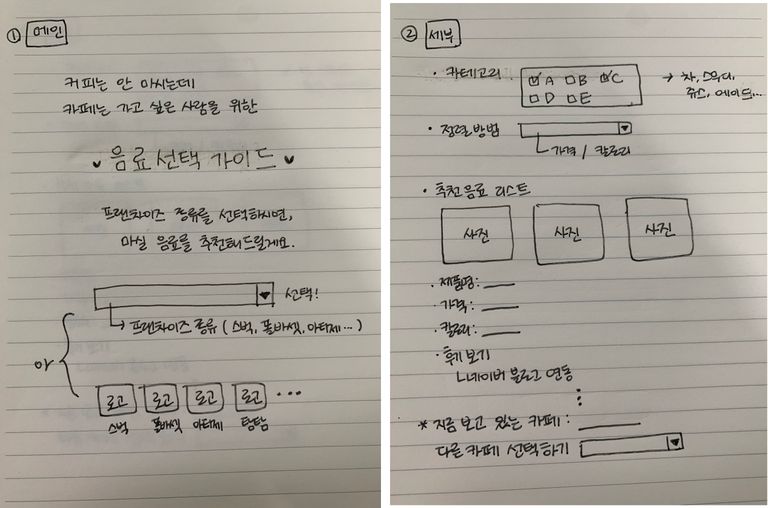 ① 메인
커피는 안 마시는데
카페는 가고 싶은 사람을 위한
음료선택 가이드
프랜차이즈 종류를 선택하시면,
마실 음료를 추천해드릴게요.
선택!
프랜차이즈 종류 (스벅, 폴바셋, 아티제...)
or
로고 로고 로고 로고 ...
스벅 폴바셋 아티제 탐탐
② 세부
· 카테고리
A B C
D E
→ 차, 스무디,
쥬스, 에이드...
· 정렬 방법
가격 / 칼로리
· 추천 음료 리스트
사진 사진 사진
· 제품명:
· 가격:
· 칼로리:
· 후기 보기
네이버 블로그 연동
* 지금 보고 있는 카페:
다른 카페 선택하기